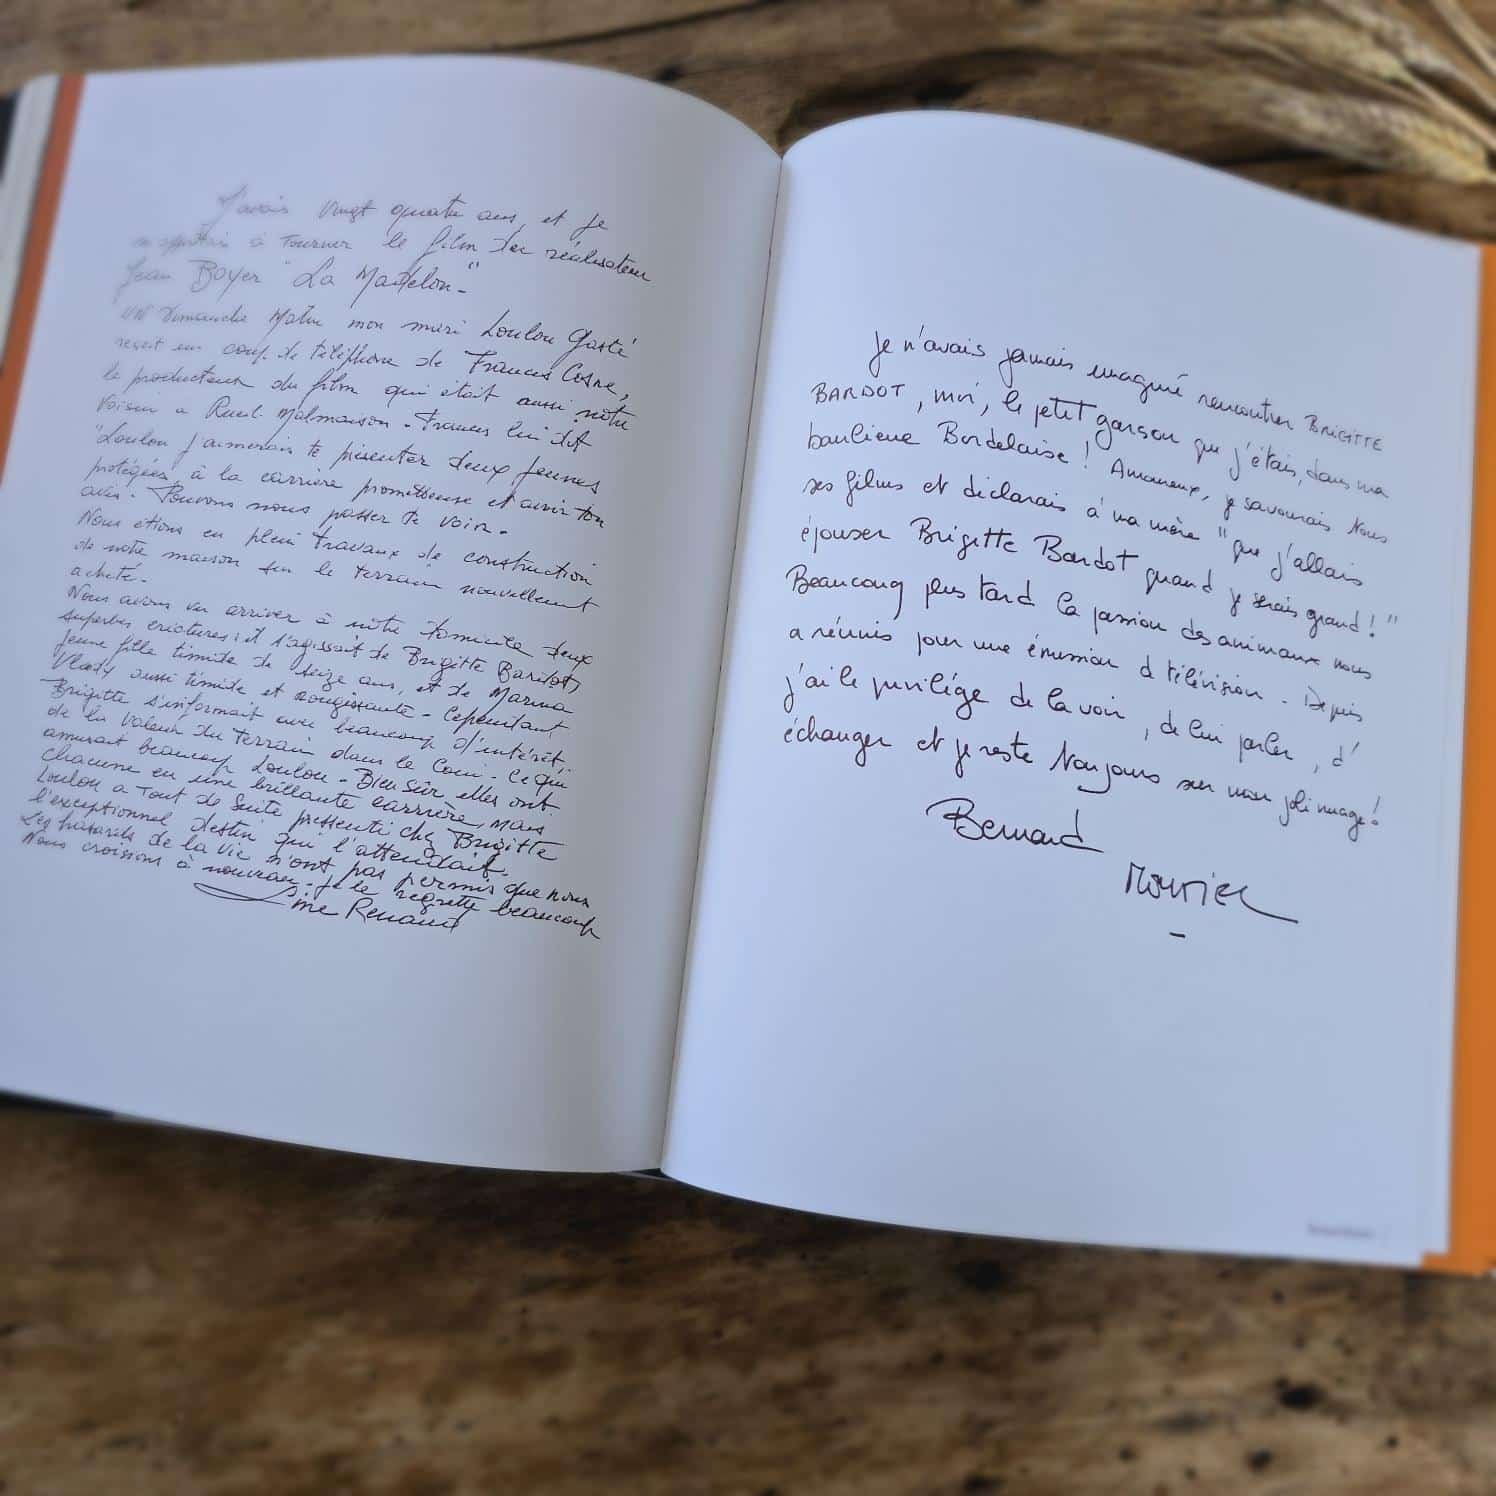 J'avais vingt quatre ans, et je
m'apprêtais à tourner le film du réalisateur
Jean Boyer "La Madelon"-
UN Dimanche Matin mon mari Loulou Gasté
reçoit un coup de téléphone de Francis Cosne,
le producteur du film qui était aussi notre
voisin à Rueil Malmaison - Francis lui dit
"Loulou j'aimerais te présenter deux jeunes
protégées, à la carrière prometteuse et avoir ton
avis - Pouvons nous passer te voir -
Nous étions en plein travaux de construction
de notre maison sur le terrain nouvellement
acheté -
Nous avons vu arriver à notre domicile deux
superbes créatures; il s'agissait de Brigitte Bardot,
jeune fille timide de seize ans, et de Marina
Vlady aussi timide et rougissante - Cependant
Brigitte s'informait avec beaucoup d'intérêt
de la valeur du terrain dans le coin - Ce qui
amusait beaucoup Loulou - Bien sûr elles ont
chacune eu une brillante carrière, mais
Loulou a tout de suite pressenti chez Brigitte
l'exceptionnel destin qui l'attendait.
Les hasards de la vie n'ont pas permis que nous
nous croisions à nouveau - je le regrette beaucoup
Line Renaud
Je n'avais jamais imaginé rencontrer BRIGITTE
BARDOT, moi, le petit garson que j'étais, dans ma
banlieue Bordelaise! Amoureux, je savourais tous
ses films et déclarais à ma mère "que j'allais
épouser Brigitte Bardot quand je serais grand!"
Beaucoup plus tard la passion des animaux nous
a réunis pour une émission d télévision - Depuis
j'ai le privilège de la voir, de lui parler, d'
échanger et je reste toujours sur mon joli nuage!
Bernard
Montiel